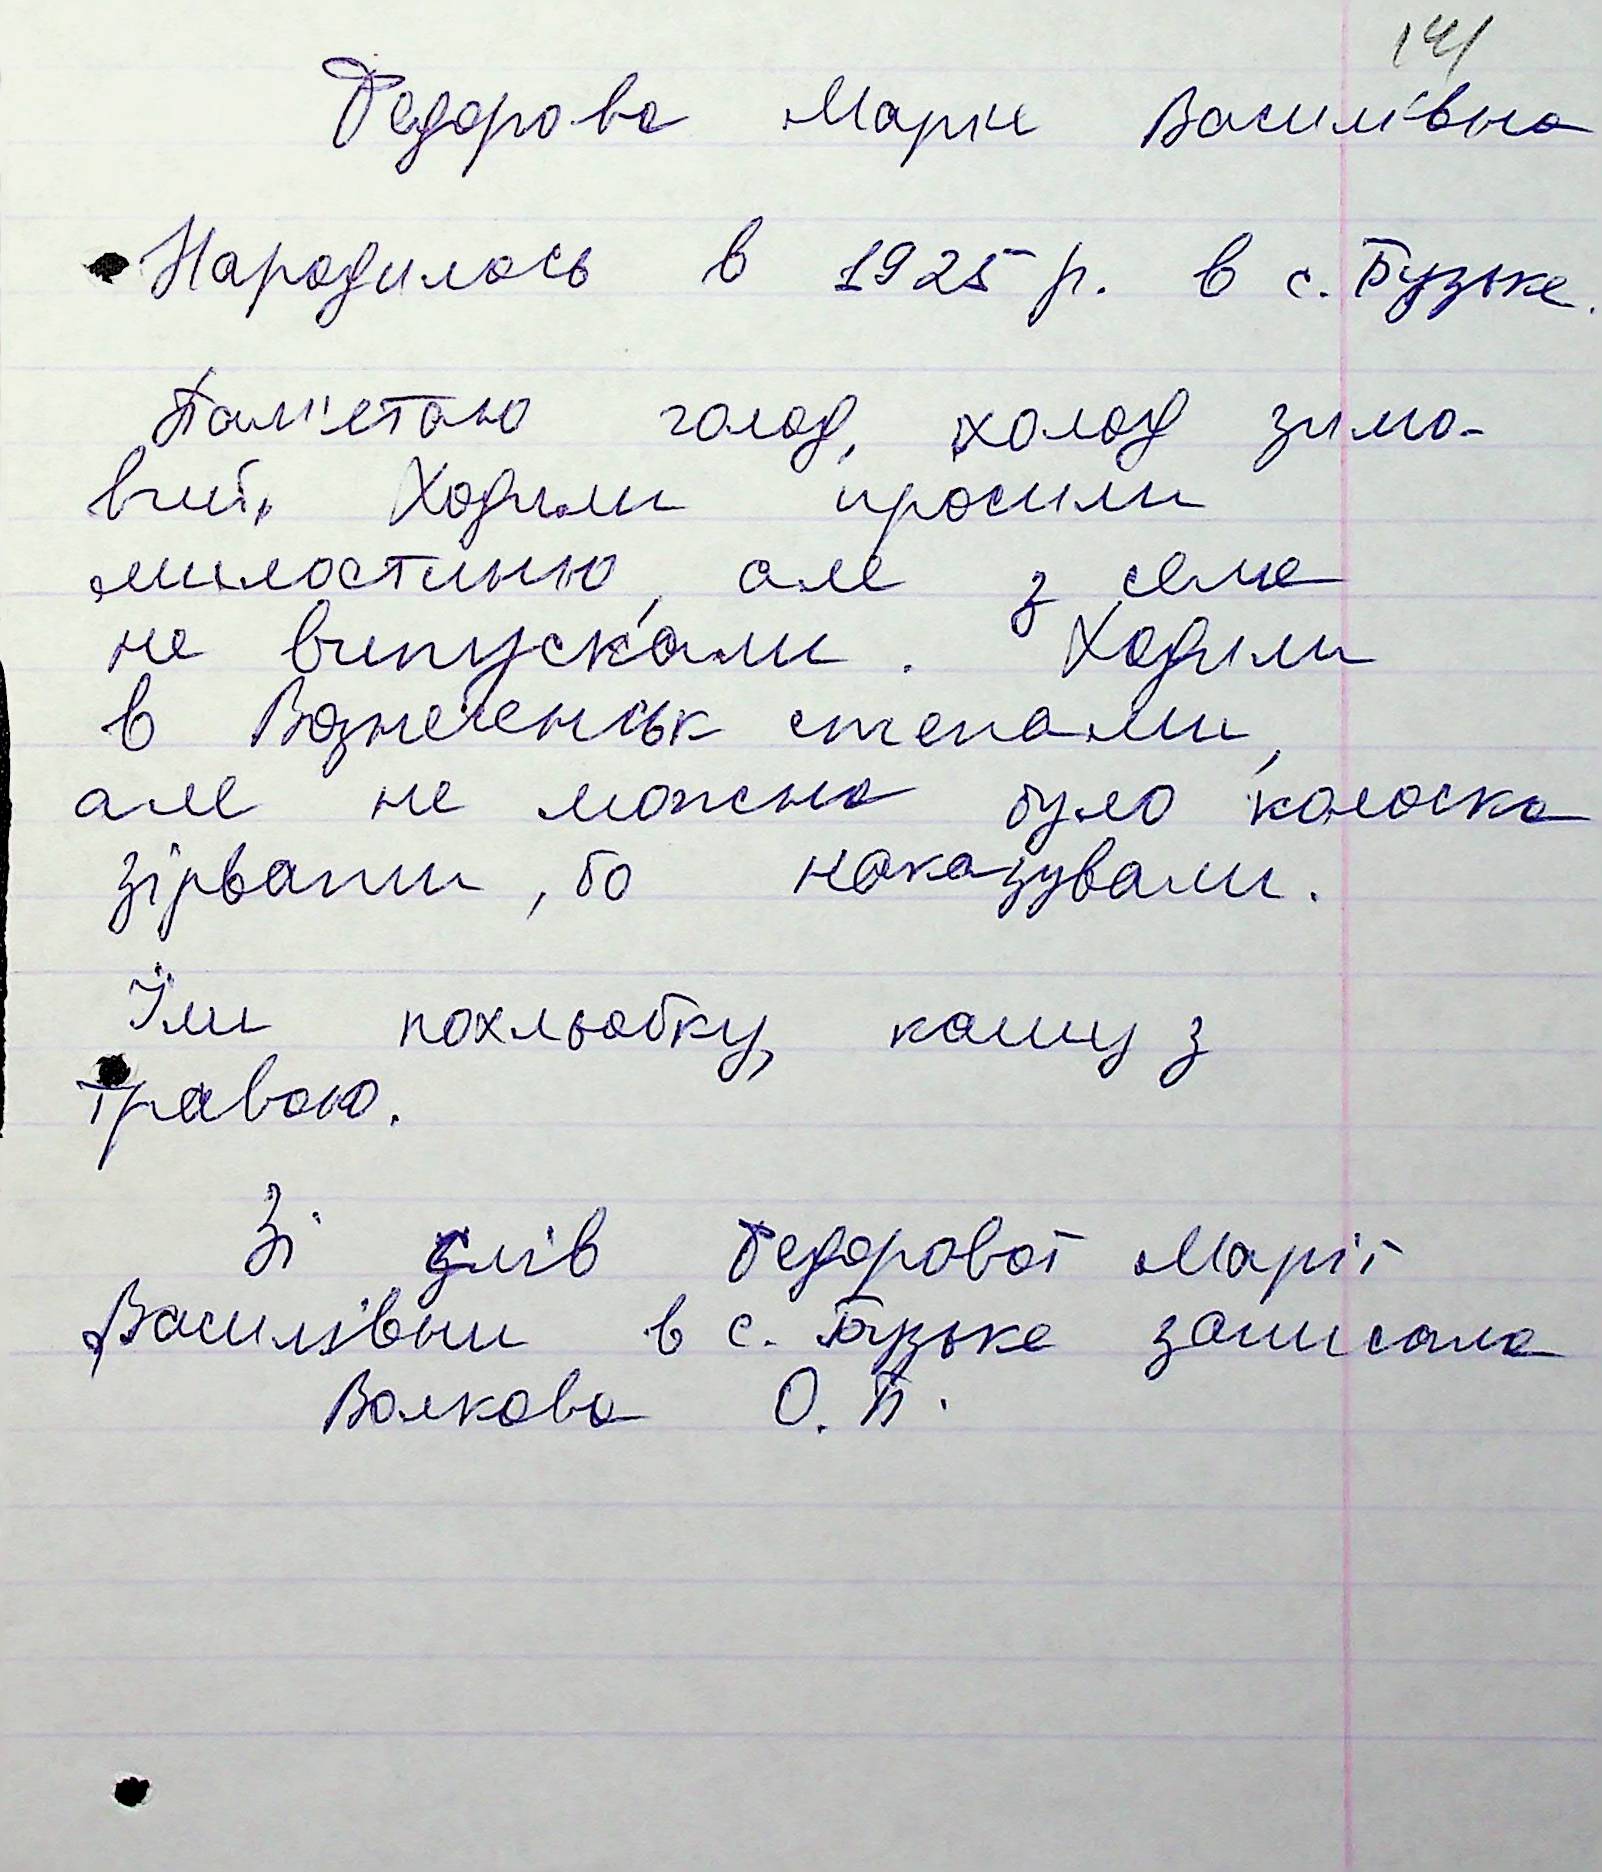 141
Федорова Марія Василівна
Народилась в 1925 р. в с. Бузьке.
Пам'ятаю голод, холод зимо-
вий. Ходили просили
милостиню, але з села
не випускали. Ходили
в Вознесенськ степами,
але не можна було колоска
зірвати, бо наказували.
Їли похльобку, кашу з
травою.
Зі слів Федорової Марії
Василівни в с. Бузьке записала
Волкова О. П.